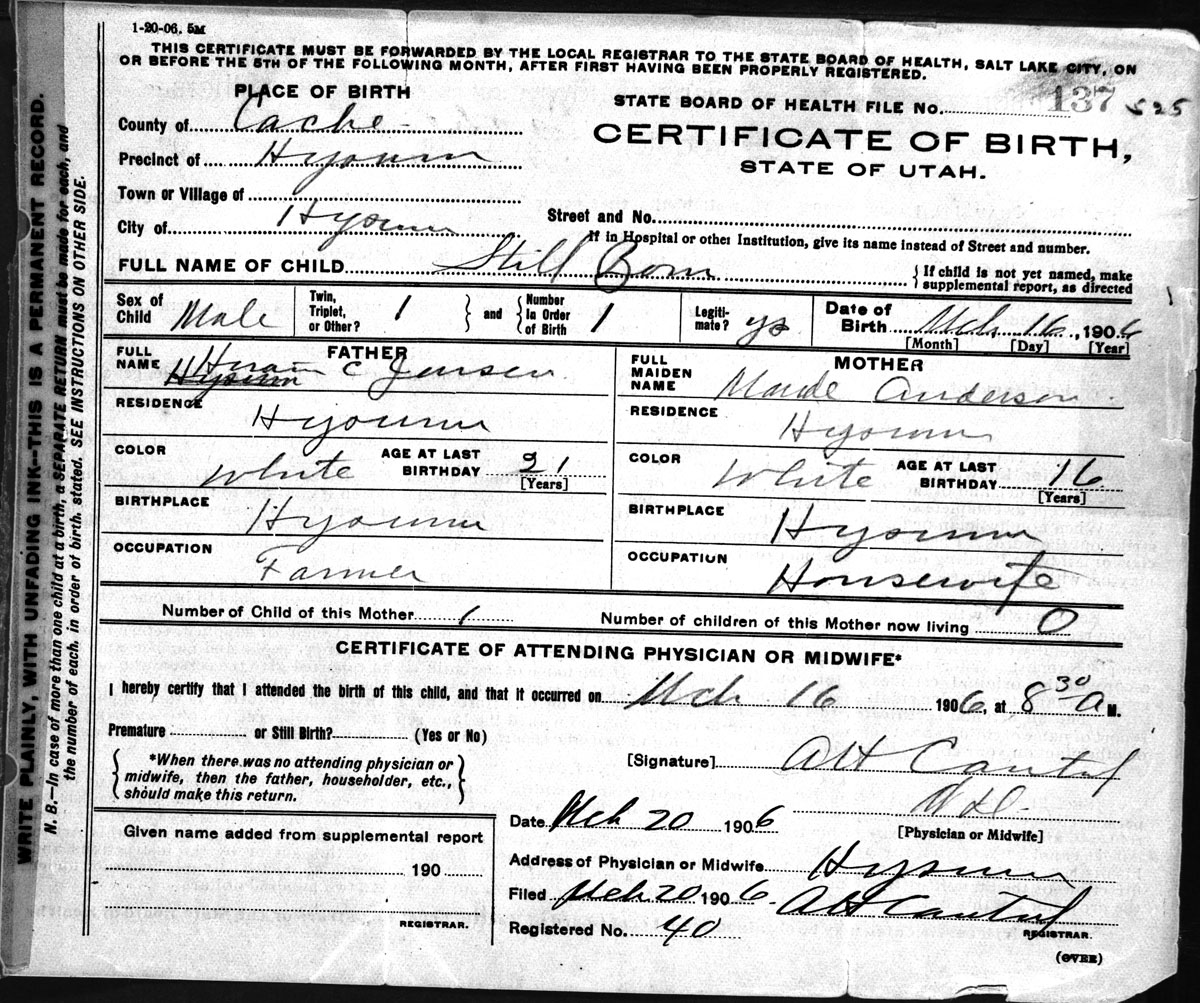 1-20-06. 5M
THIS CERTIFICATE MUST BE FORWARDED BY THE LOCAL REGISTRAR TO THE STATE BOARD OF HEALTH, SALT LAKE CITY, ON
OR BEFORE THE 5TH OF THE FOLLOWING MONTH, AFTER FIRST HAVING BEEN PROPERLY REGISTERED.
WRITE PLAINLY, WITH UNFADING INK—THIS IS A PERMANENT RECORD.
N. B.—In case of more than one child at a birth, a SEPARATE RETURN must be made for each, and
the number of each, in order of birth, stated. SEE INSTRUCTIONS ON OTHER SIDE.
PLACE OF BIRTH
STATE BOARD OF HEALTH FILE No. 137 525
County of Cache
CERTIFICATE OF BIRTH,
STATE OF UTAH.
Precinct of Hyrum
Town or Village of
City of Hyrum
Street and No.
If in Hospital or other Institution, give its name instead of Street and number.
FULL NAME OF CHILD Still Born
{ If child is not yet named, make
supplemental report, as directed
Sex of Child Male
Twin, Triplet, or Other? 1
and
Number In Order of Birth 1
Legiti- mate? ys
Date of Birth Mch 16, 1906
[Month] [Day] [Year]
FATHER
FULL NAME Hiram C Jensen
RESIDENCE Hyrum
COLOR White AGE AT LAST BIRTHDAY 21
[Years]
BIRTHPLACE Hyrum
OCCUPATION Farmer
MOTHER
FULL MAIDEN NAME Maude Anderson
RESIDENCE Hyrum
COLOR White AGE AT LAST BIRTHDAY 16
[Years]
BIRTHPLACE Hyrum
OCCUPATION Housewife
Number of Child of this Mother 1 Number of children of this Mother now living 0
CERTIFICATE OF ATTENDING PHYSICIAN OR MIDWIFE*
I hereby certify that I attended the birth of this child, and that it occurred on Mch 16 1906, at 8 30 A M.
Premature or Still Birth? (Yes or No)
{ *When there was no attending physician or
midwife, then the father, householder, etc.,
should make this return. }
[Signature] AH
MD.
[Physician or Midwife]
Date Mch 20 1906
Given name added from supplemental report
190
REGISTRAR.
Address of Physician or Midwife Hyrum
Filed Mch 20 1906. AH
Registered No. 40
REGISTRAR.
(OVER)